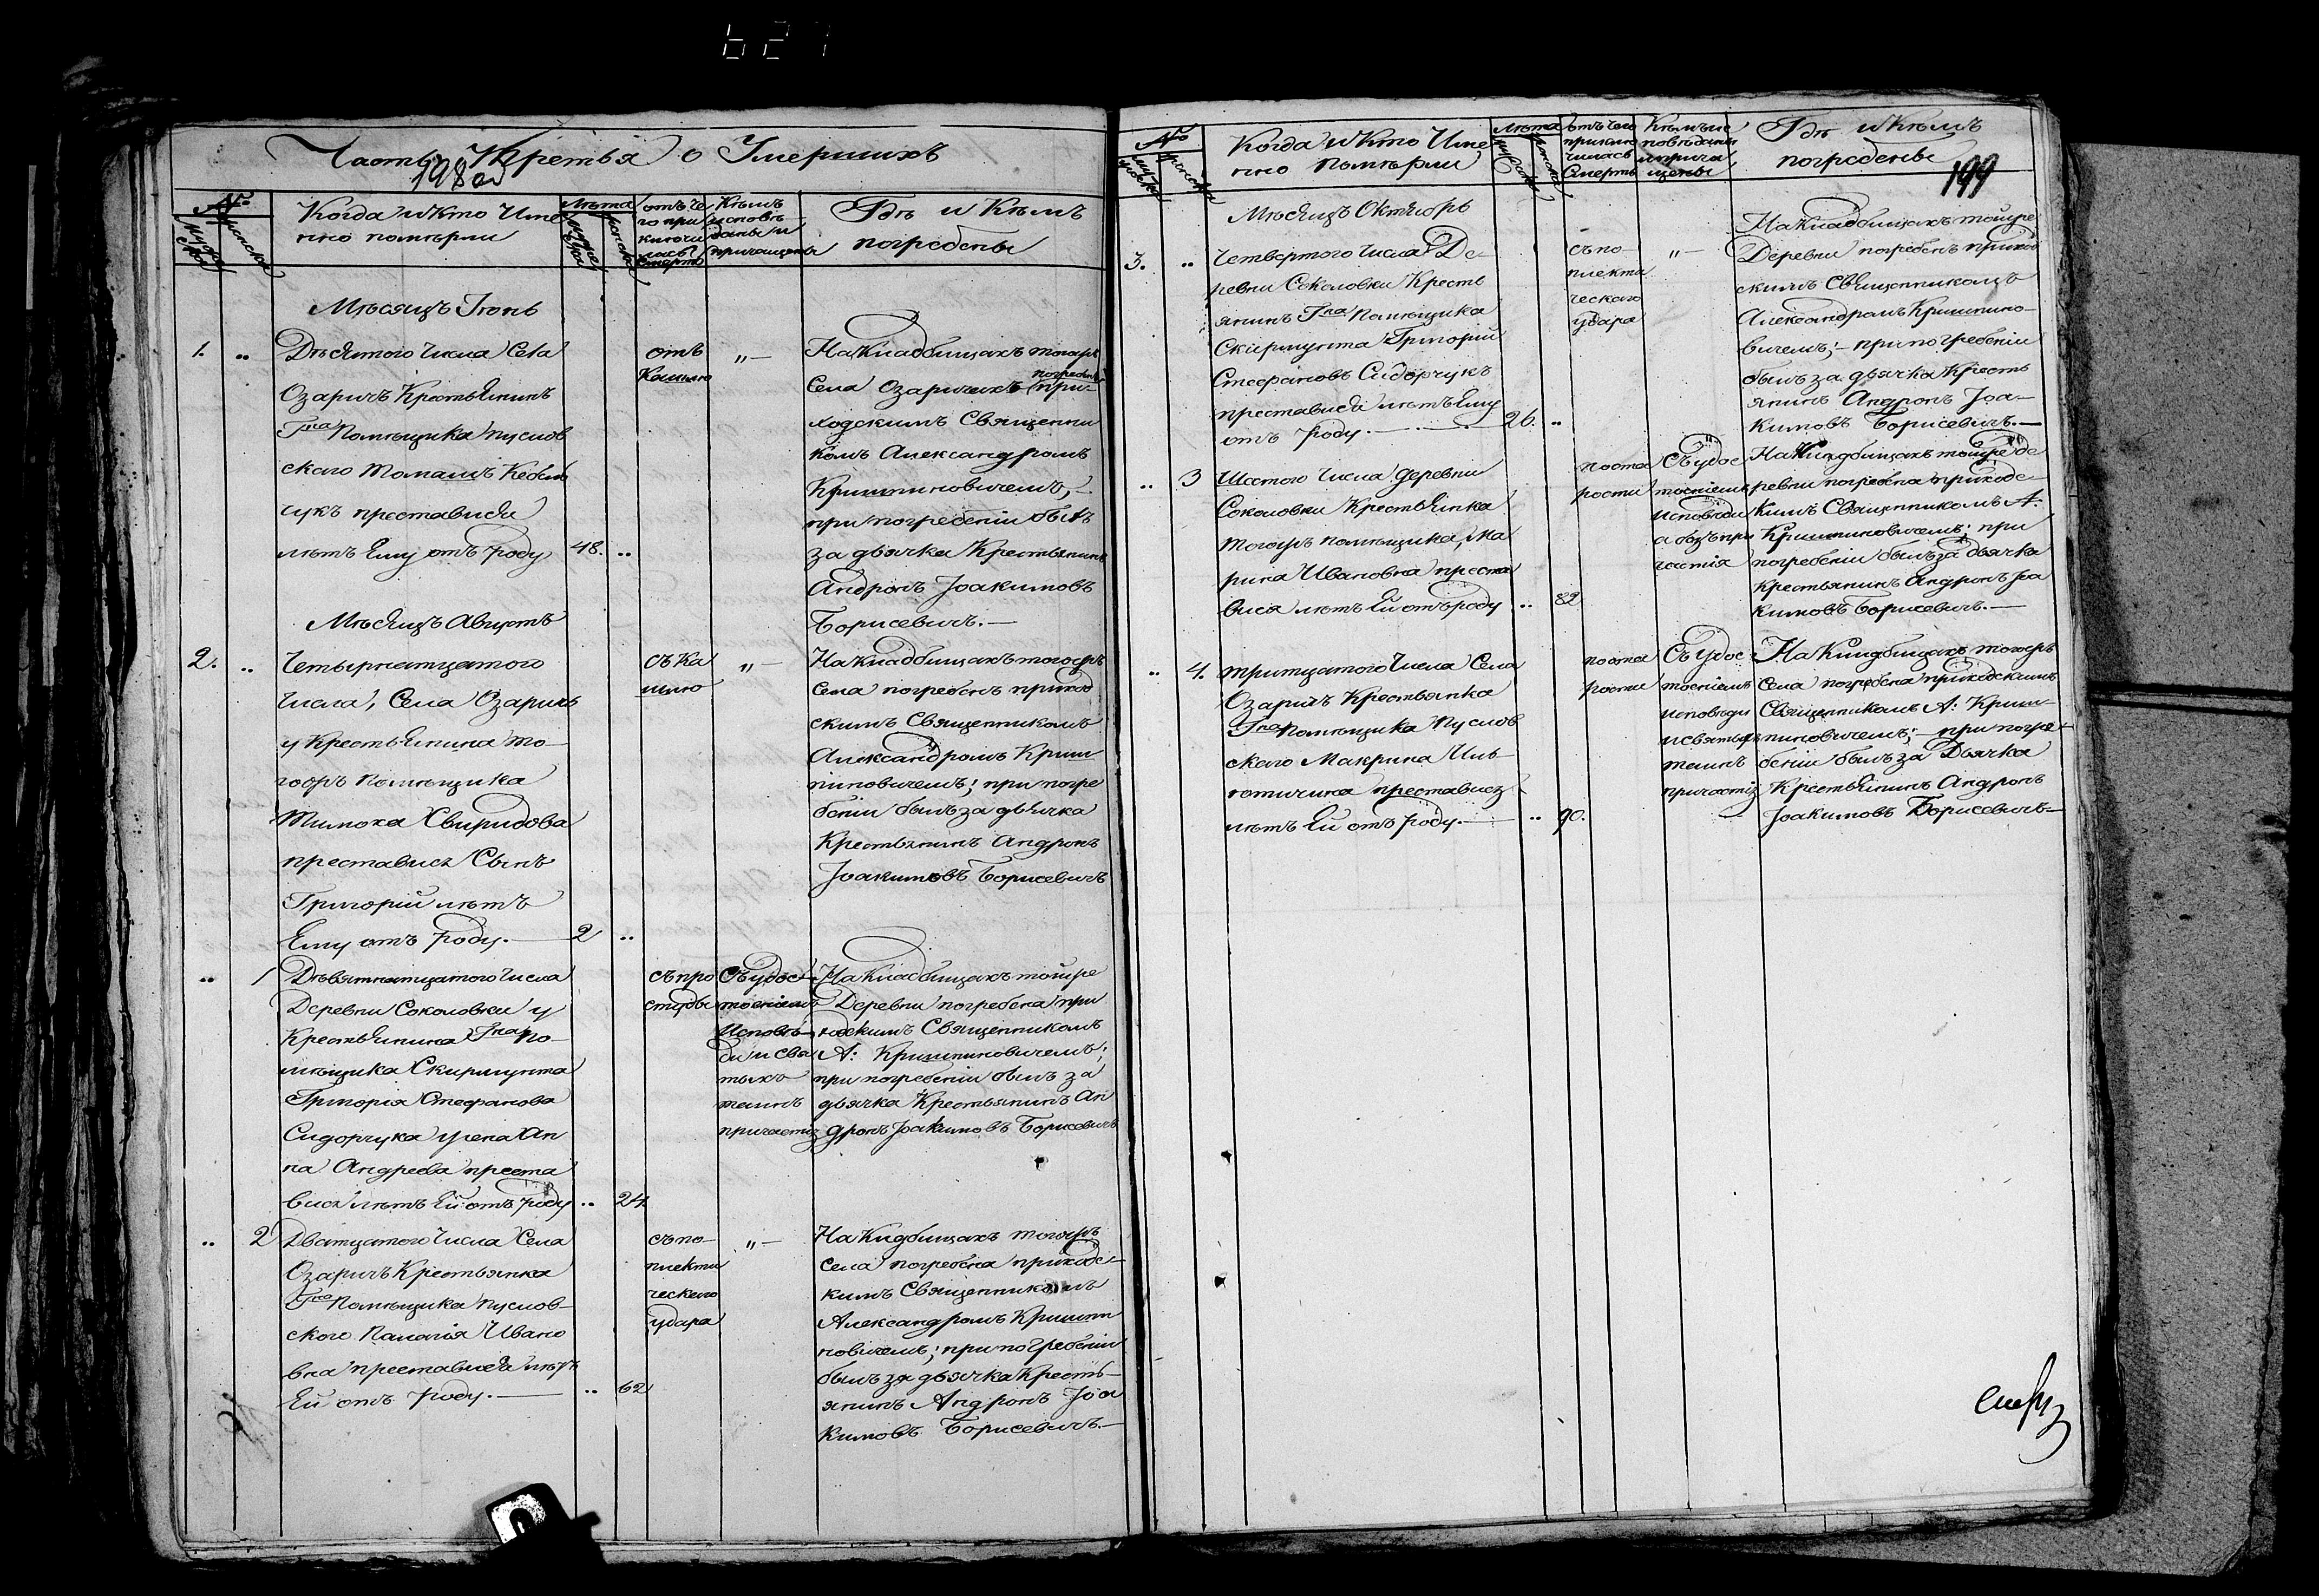 Часть Третья о Умершихъ
198 об
№
мужска
женска
Когда и кто Име
нно померли
Лѣта
мужска
женска
отъ че
го при
ключи
лась
смерть
Кѣмъ
исповѣ
даны и
причащены
Гдѣ и Кѣмъ
погребены
Мѣсяцъ Іюнь
1.
Дѣсятого числа Села
Озаричъ Крестьянинъ
Гна Помѣщика Пуслов
ского Томашъ
чукъ преставися
лѣтъ Ему отъ роду
48.
отъ
Кашлю
„—
На кладбищахъ тогожъ
Села Озаричахъ погребенъ при-
ходскимъ Священни
комъ Александромъ
Кришпиновичемъ,
при погребеніи былъ
за дьячка Крестьянинъ
Андронъ Іоакимовъ
Борисевичъ.—
Мѣсяцъ Августъ
2.
Четырнатцатого
числа, Села Озаричъ
у Крестьянина то-
гожъ помѣщика
Тимоха Свиридова
преставися Сынъ
Григорій лѣтъ
Ему отъ роду.—
2
съ Ка
шлю
„—
На кладбищахъ тогожъ
Села погребенъ приход
скимъ Священникомъ
Александромъ Криш
пиновичемъ; при погре
беніи былъ за дьячка
Крестьянинъ Андронъ
Іоакимовъ Борисевичъ
1
Дѣвятнатцатого числа
Деревни Соколовки у
Крестьянина Гна По-
мѣщика Скирмунта
Григорія Стефанова
Сидорчука жена Ан
на Андреева преста
вися лѣтъ Ей отъ роду
24
съ про
студы
Съ удос-
тоеніемъ
Исповѣ-
ди и свя
тыхъ
таинъ
причастія
На кладбищахъ тойже
Деревни погребена при
ходскимъ Священникомъ
А: Кришпиновичемъ;
при погребеніи былъ за
дьячка Крестьянинъ Ан
дронъ Іоакимовъ Борисевичъ
2
Дватцатого числа Села
Озаричъ Крестьянка
Гна Помѣщика Пуслов-
ского Палагія Ивано
вна преставися лѣтъ
Ей отъ роду.—
62
съ по-
плекти
ческого
удара
„—
На кладбищахъ тогожъ
Села погребена приходс-
кимъ Священникомъ
Александромъ Кришпи
новичемъ; при погребеніи
былъ за дьячка Кресть-
янинъ Андронъ Іоа
кимовъ Борисевичъ.—
№
мужска
женска
Когда и кто Име
нно померли
Лѣта
мужска
женска
отъ чего
приклю
чилась
Смерть
Кѣмъ ис
повѣданы
и прича
щены
Гдѣ и Кѣмъ
погребены
199
Мѣсяцъ Октябрь
3.
Четвертого числа Де-
ревни Соколовки Кресть
янинъ Гна Помѣщика
Скирмунта Григорій
Стефановъ Сидорчукъ
преставися лѣтъ Ему
отъ роду.—
26.
съ по-
плекти
ческого
удара
„—
На кладбищахъ тойже
Деревни погребенъ приход
скимъ Священникомъ
Александромъ Кришпино-
вичемъ;— при погребеніи
былъ за дьячка Кресть
янинъ Андронъ Іоа-
кимовъ Борисевичъ.—
3
Шестого числа деревни
Соколовки Крестьянка
тогожъ помѣщика, Ма
рина Ивановна преста
вися лѣтъ Ей отъ роду
82
по ста
рости
Съ удос
тоеніемъ
исповѣди
а безъ при
частія
На кладбищахъ тойже де
ревни погребена приходс-
кимъ Священникомъ А:
Кришпиновичемъ; при
погребеніи былъ за дьячка
Крестьянинъ Андронъ Іоа
кимовъ Борисевичъ.—
4.
Тритцатого числа Села
Озаричъ Крестьянка
Гна Помѣщика Пуслов
ского Макрина
преставися
лѣтъ Ей отъ роду.—
90.
по ста
рости
Съ удос
тоеніемъ
исповѣди
и святыхъ
таинъ
причастія
На Кладбищахъ тогожъ
Села погребена приходскимъ
Священникомъ А: Криш-
пиновичемъ;— при погре-
беніи былъ за Дьячка
Крестьянинъ Андронъ
Іоакимовъ Борисевичъ—